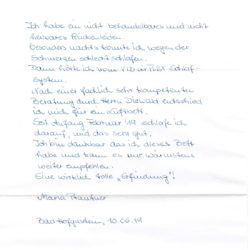 Ich habe ein nicht behandelbares und nicht
heilbares Rückenleiden.
Besonders nachts konnte ich wegen der
Schmerzen schlecht schlafen.
Dann hörte ich vom Schlaf-
system.
Nach einer fachlich sehr kompetenten
Beratung durch Herrn entschied
ich mich für ein Luftbett.
Seit Anfang Februar '19 schlafe ich
darauf, und das sehr gut.
Ich bin dankbar das ich dieses Bett
habe und kann es nur wärmstens
weiter empfehlen.
Eine wirklich tolle „Erfindung"!
Maria
Bad Hofgastein, 10.06.19